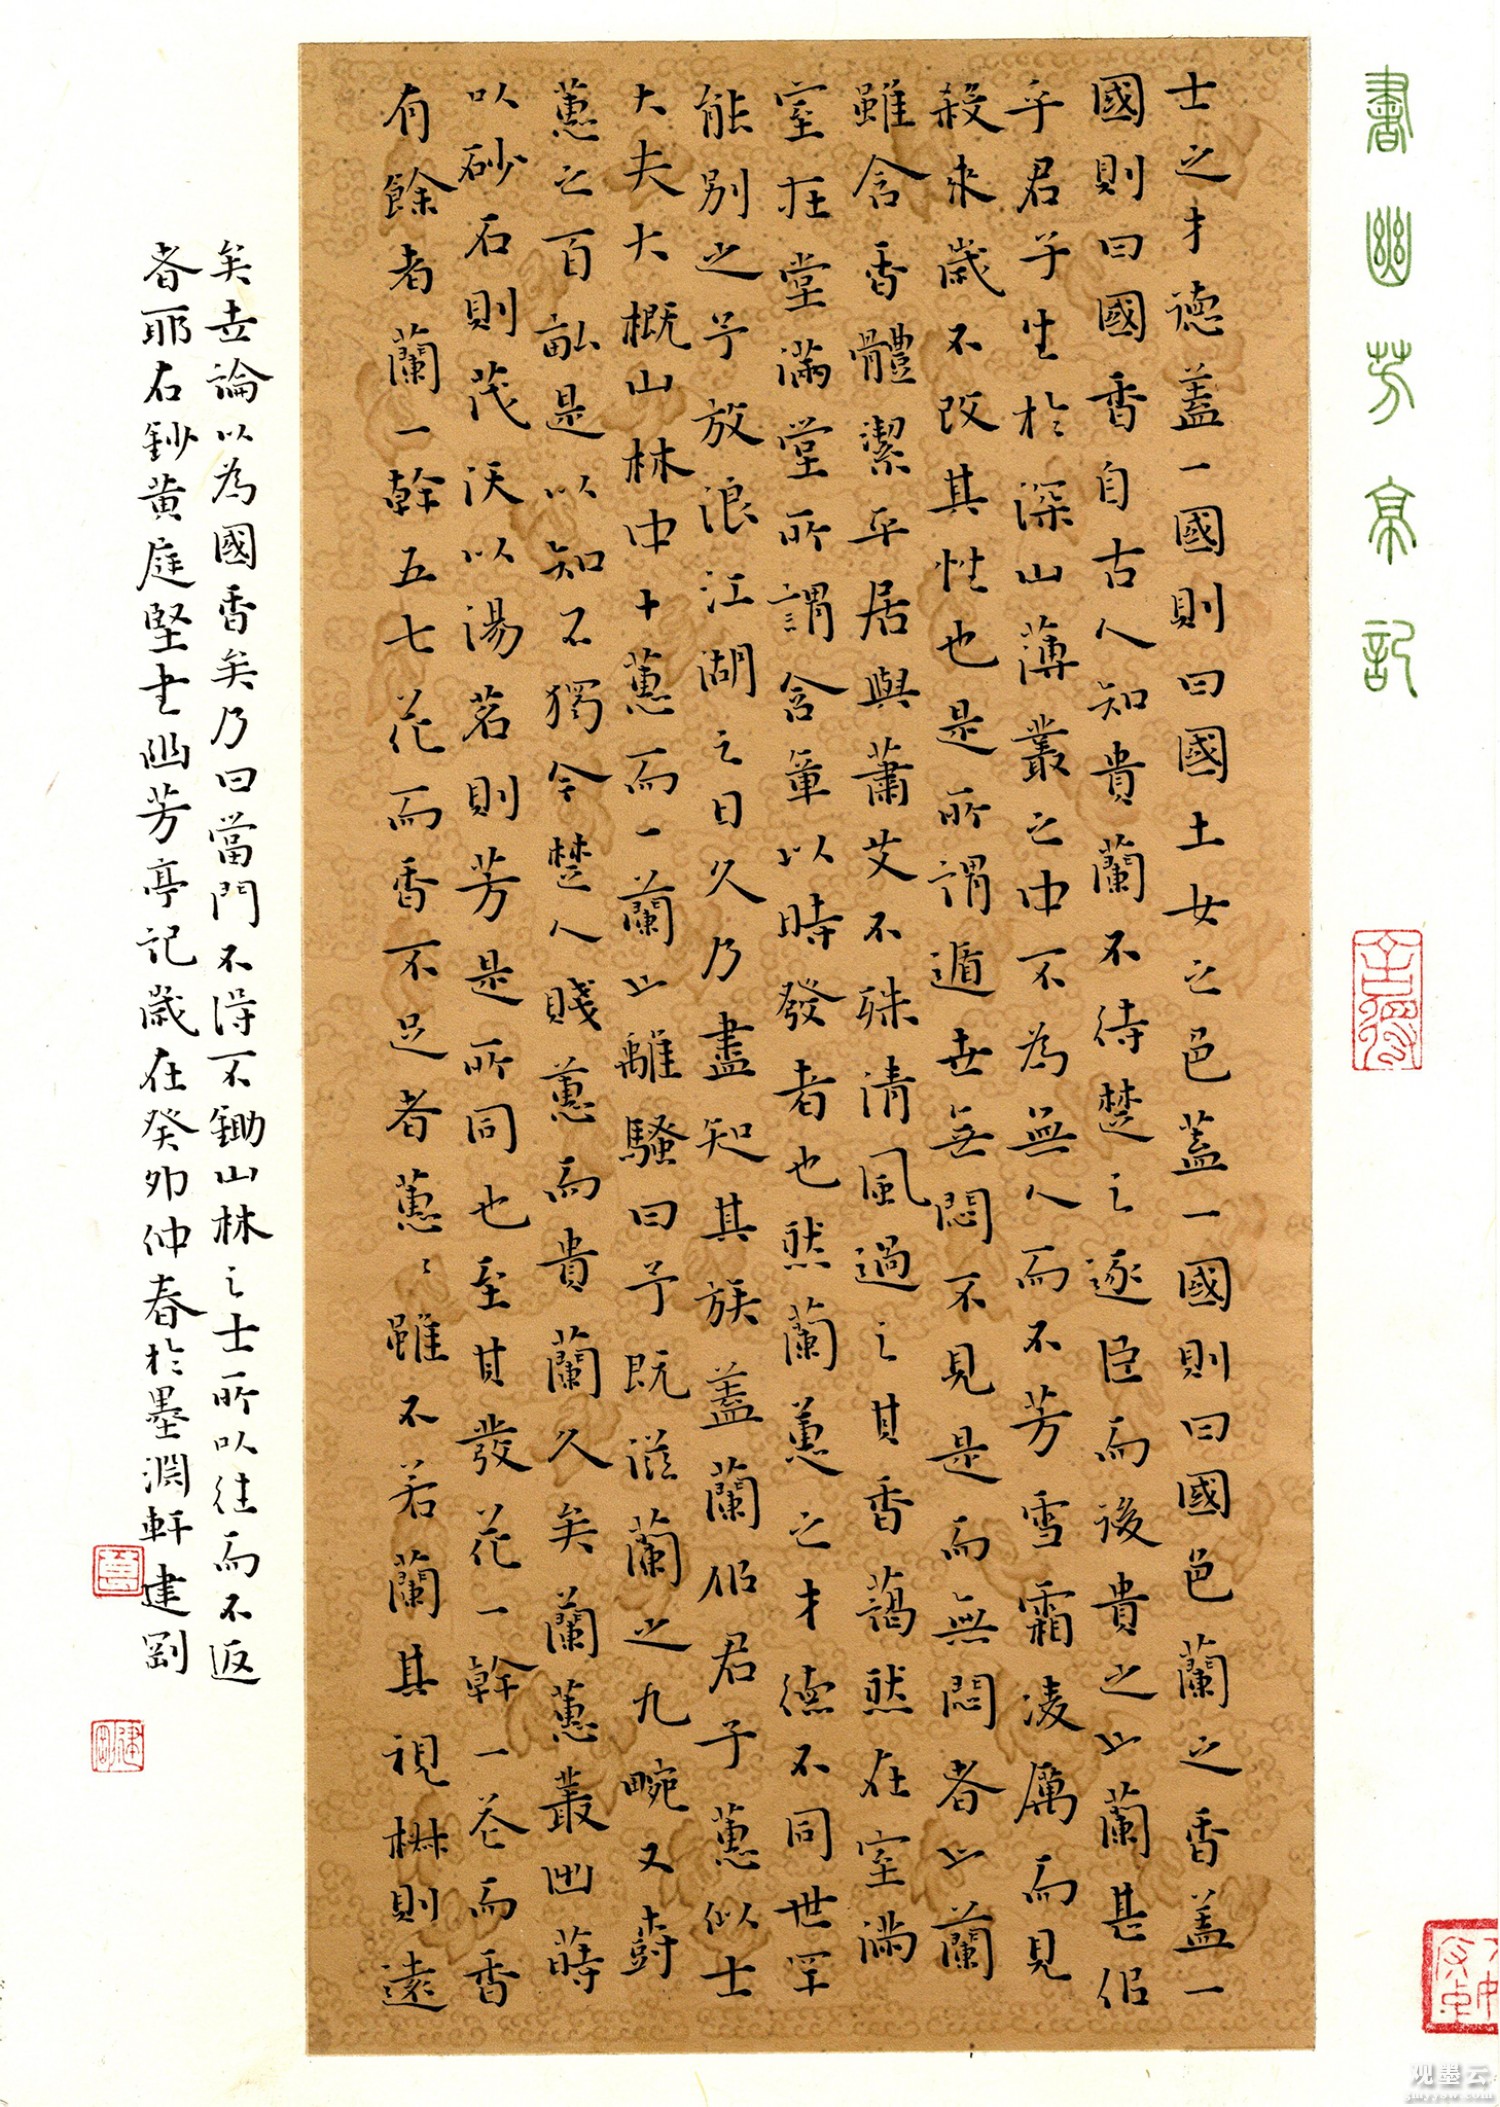 書幽芳亭記
士之才德盖一國則曰國士女之色盖一國則曰國色蘭之香盖一
國則曰國香自古人知貴蘭不待楚之逐臣而後貴之也蘭甚佀
乎君子生於深山薄叢之中不為無人而不芳雪霜凌厲而見
殺来歲不改其性也是所謂遁世無悶不見是而無悶者也蘭
雖含香體潔平居與蕭艾不殊清風過之其香藹然在室滿
室在堂滿堂所謂含章以時發者也然蘭蕙之才德不同世罕
能別之予放浪江湖之日久乃盡知其族盖蘭佀君子蕙似士
大夫大概山林中十蕙而一蘭也離騷曰予既滋蘭之九畹又樹
蕙之百畝是以知不獨今楚人賤蕙而貴蘭久矣蘭蕙叢出蒔
以砂石則茂沃以湯茗則芳是所同也至其發花一幹一花而香
有餘者蘭一幹五七花而香不足者蕙〻雖不若蘭其視椒則遠
矣世論以為國香矣乃曰當門不得不鋤山林之士所以往而不返
者耶右鈔黄庭堅書幽芳亭記歲在癸卯仲春於墨淵軒建剛
建剛
观墨云